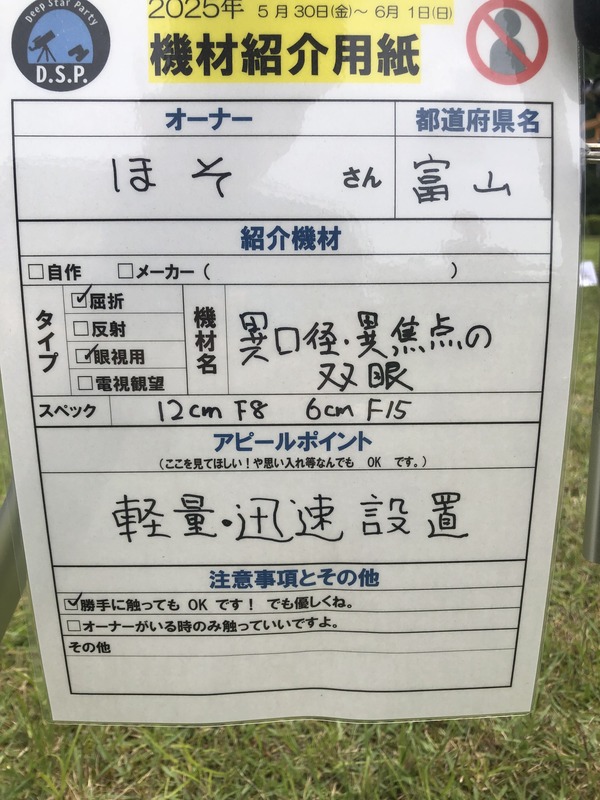 Deep Star Party
D.S.P.
2025年 5月30日(金)~ 6月 1日(日)
機材紹介用紙
オーナー
都道府県名
ほそ さん
富山
紹介機材
□自作 □メーカー( )
タイプ
☑屈折
□反射
☑眼視用
□電視観望
機材名
異口径・異焦点の
双眼
スペック
12cm F8 6cm F15
アピールポイント
(ここを見てほしい!や思い入れ等なんでも OK です。)
軽量・迅速設置
注意事項とその他
☑勝手に触っても OK です! でも優しくね。
□オーナーがいる時のみ触っていいですよ。
その他